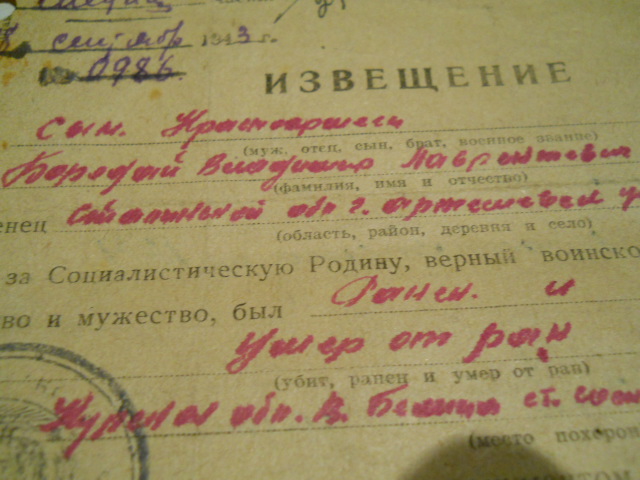 сентябр 1943 г.
№ 0986.
ИЗВЕЩЕНИЕ
сын. Красноармеец
(муж, отец, сын, брат, военное звание)
Бородай Владимир Лаврентевич
(фамилия, имя и отчество)
енец Сталинской обл г.
(область, район, деревня и село)
за Социалистическую Родину, верный воинско
во и мужество, был Ранен. и
Умер от ран
(убит, ранен и умер от ран)
Курская обл. В. ст.
(место похорон